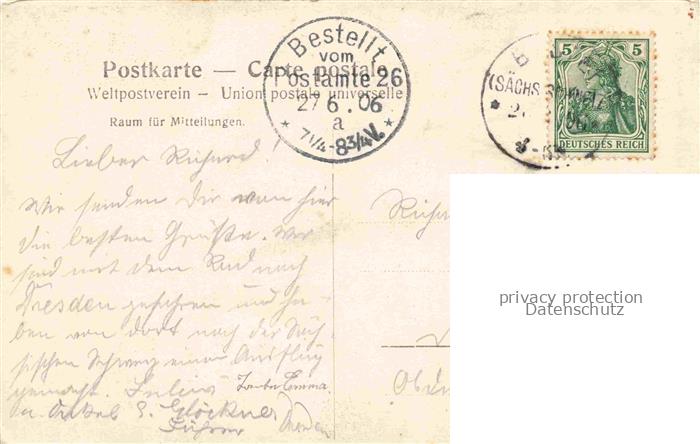 Postkarte — Carte postale
Weltpostverein — Union postale universelle
Raum für Mitteilungen.
Bestellt
vom
Postamte 26
27 6. 06
a
* 7 1/4 - 8 3/4 V. *
(SÄCHS.
5 5
DEUTSCHES REICH
Lieber Richard!
Wir senden dir von hier
die besten Grüße. Wir
sind mit dem Rad nach
Dresden gefahren und ha-
ben von dort nach der Säch-
sischen Schweiz einen Ausflug
gemacht.
Tante Emma.
u. Onkel E. Glöckner
Führer
privacy protection
Datenschutz